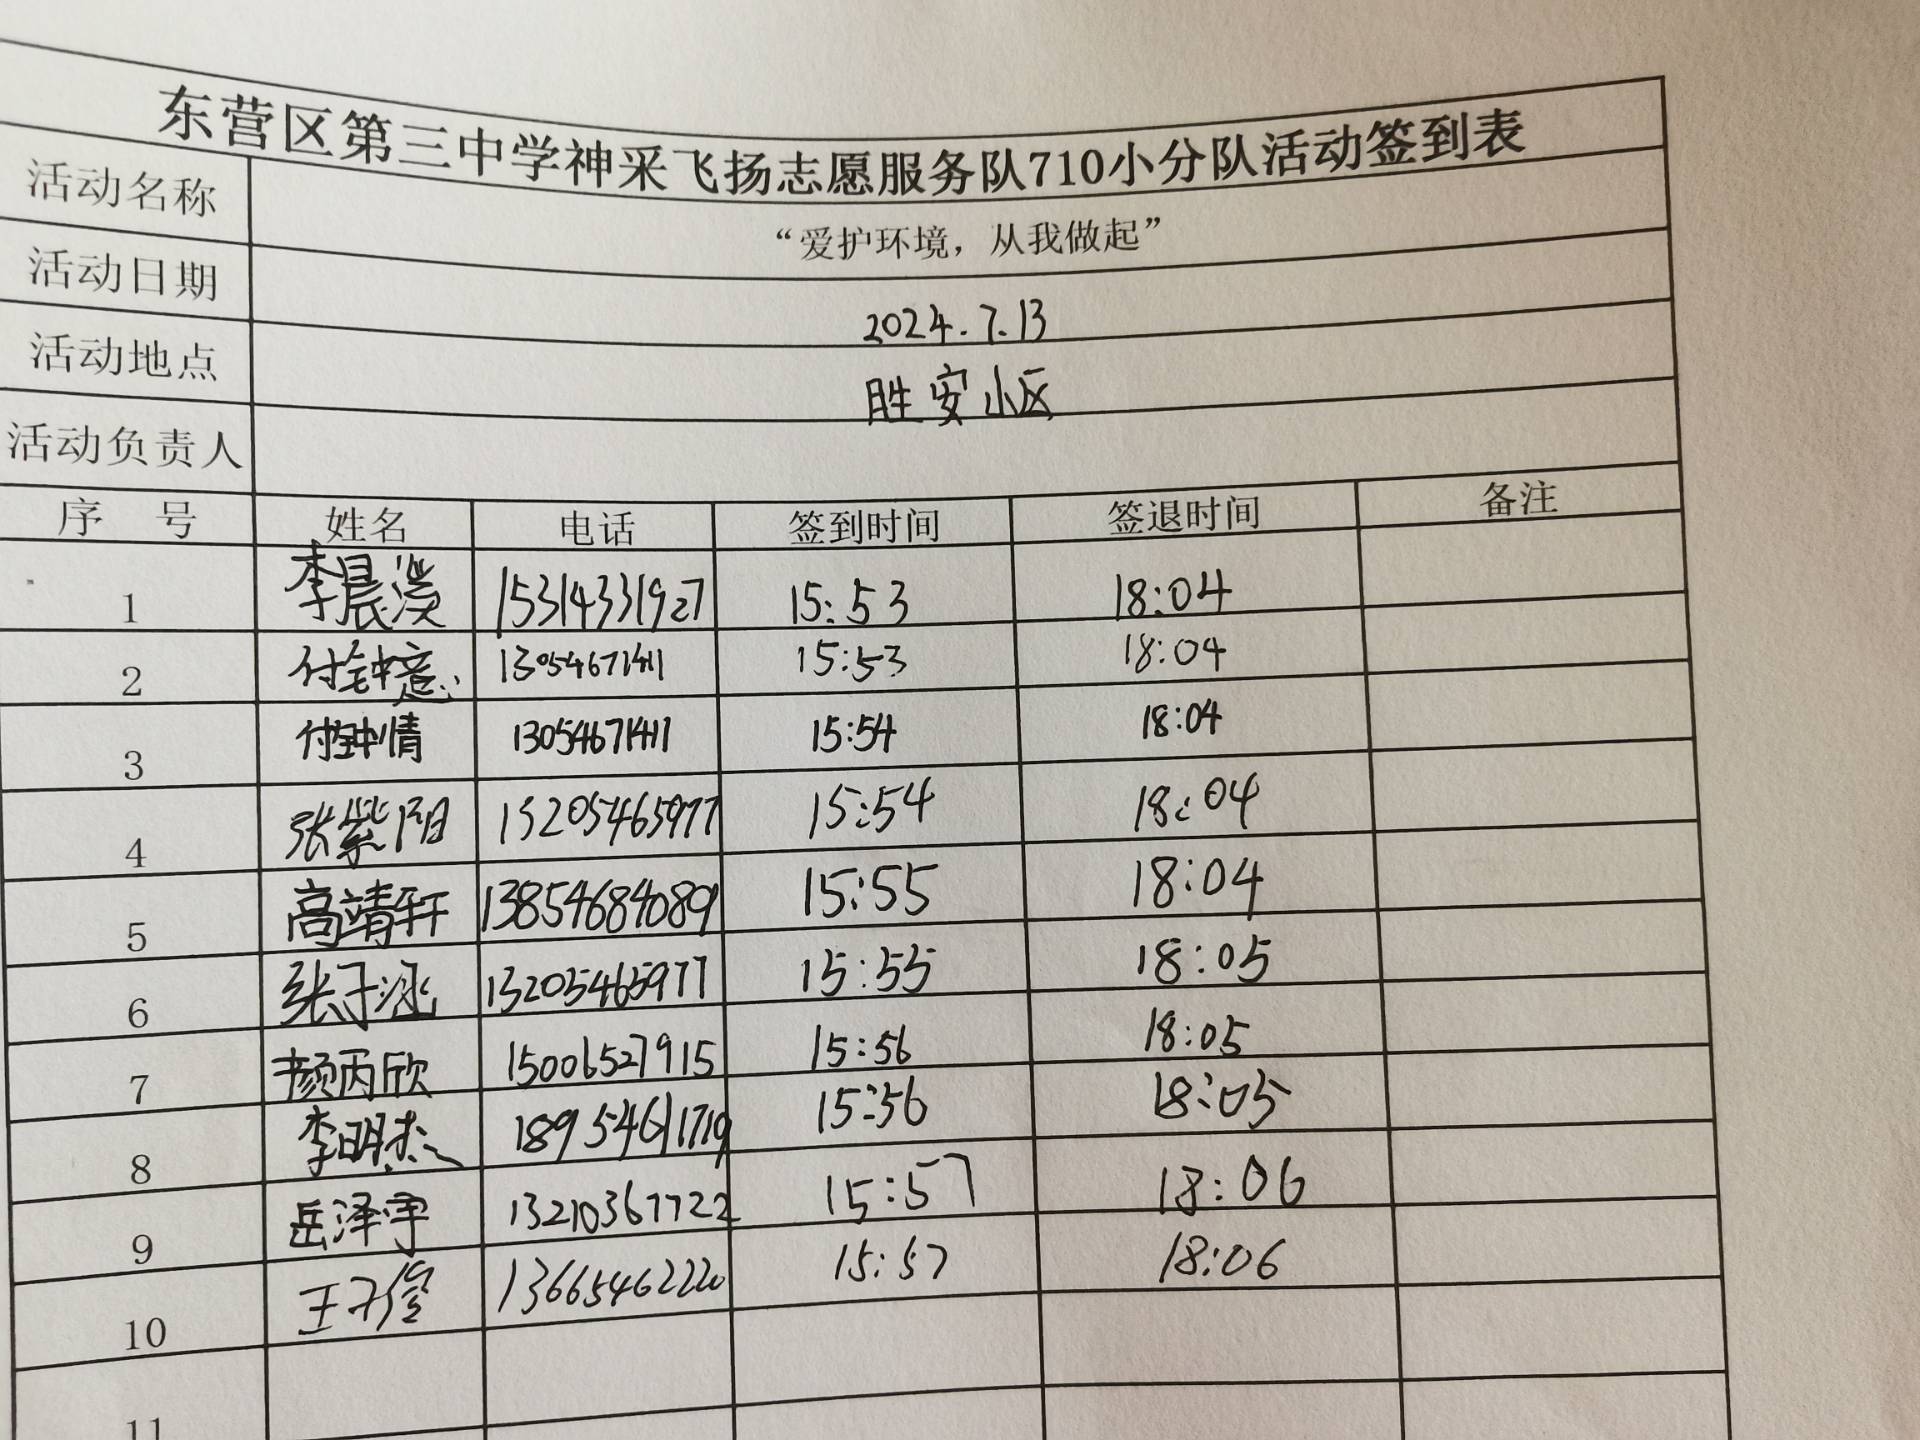 东营区第三中学神采飞扬志愿服务队710小分队活动签到表
活动名称 “爱护环境，从我做起”
活动日期 2024.7.13
活动地点 胜安小区
活动负责人
序 号 姓名 电话 签到时间 签退时间 备注
1 李晨 15314331927 15:53 18:04
2 付钟意 13054671411 15:53 18:04
3 付钟情 13054671411 15:54 18:04
4 张紫阳 13205465977 15:54 18:04
5 高靖轩 13854684089 15:55 18:04
6 张子涵 13205465977 15:55 18:05
7 颜丙欣 15006527915 15:56 18:05
8 李明杰 18954611719 15:56 18:05
9 岳泽宇 13210367722 15:57 18:06
10 王子 13665462220 15:57 18:06
11